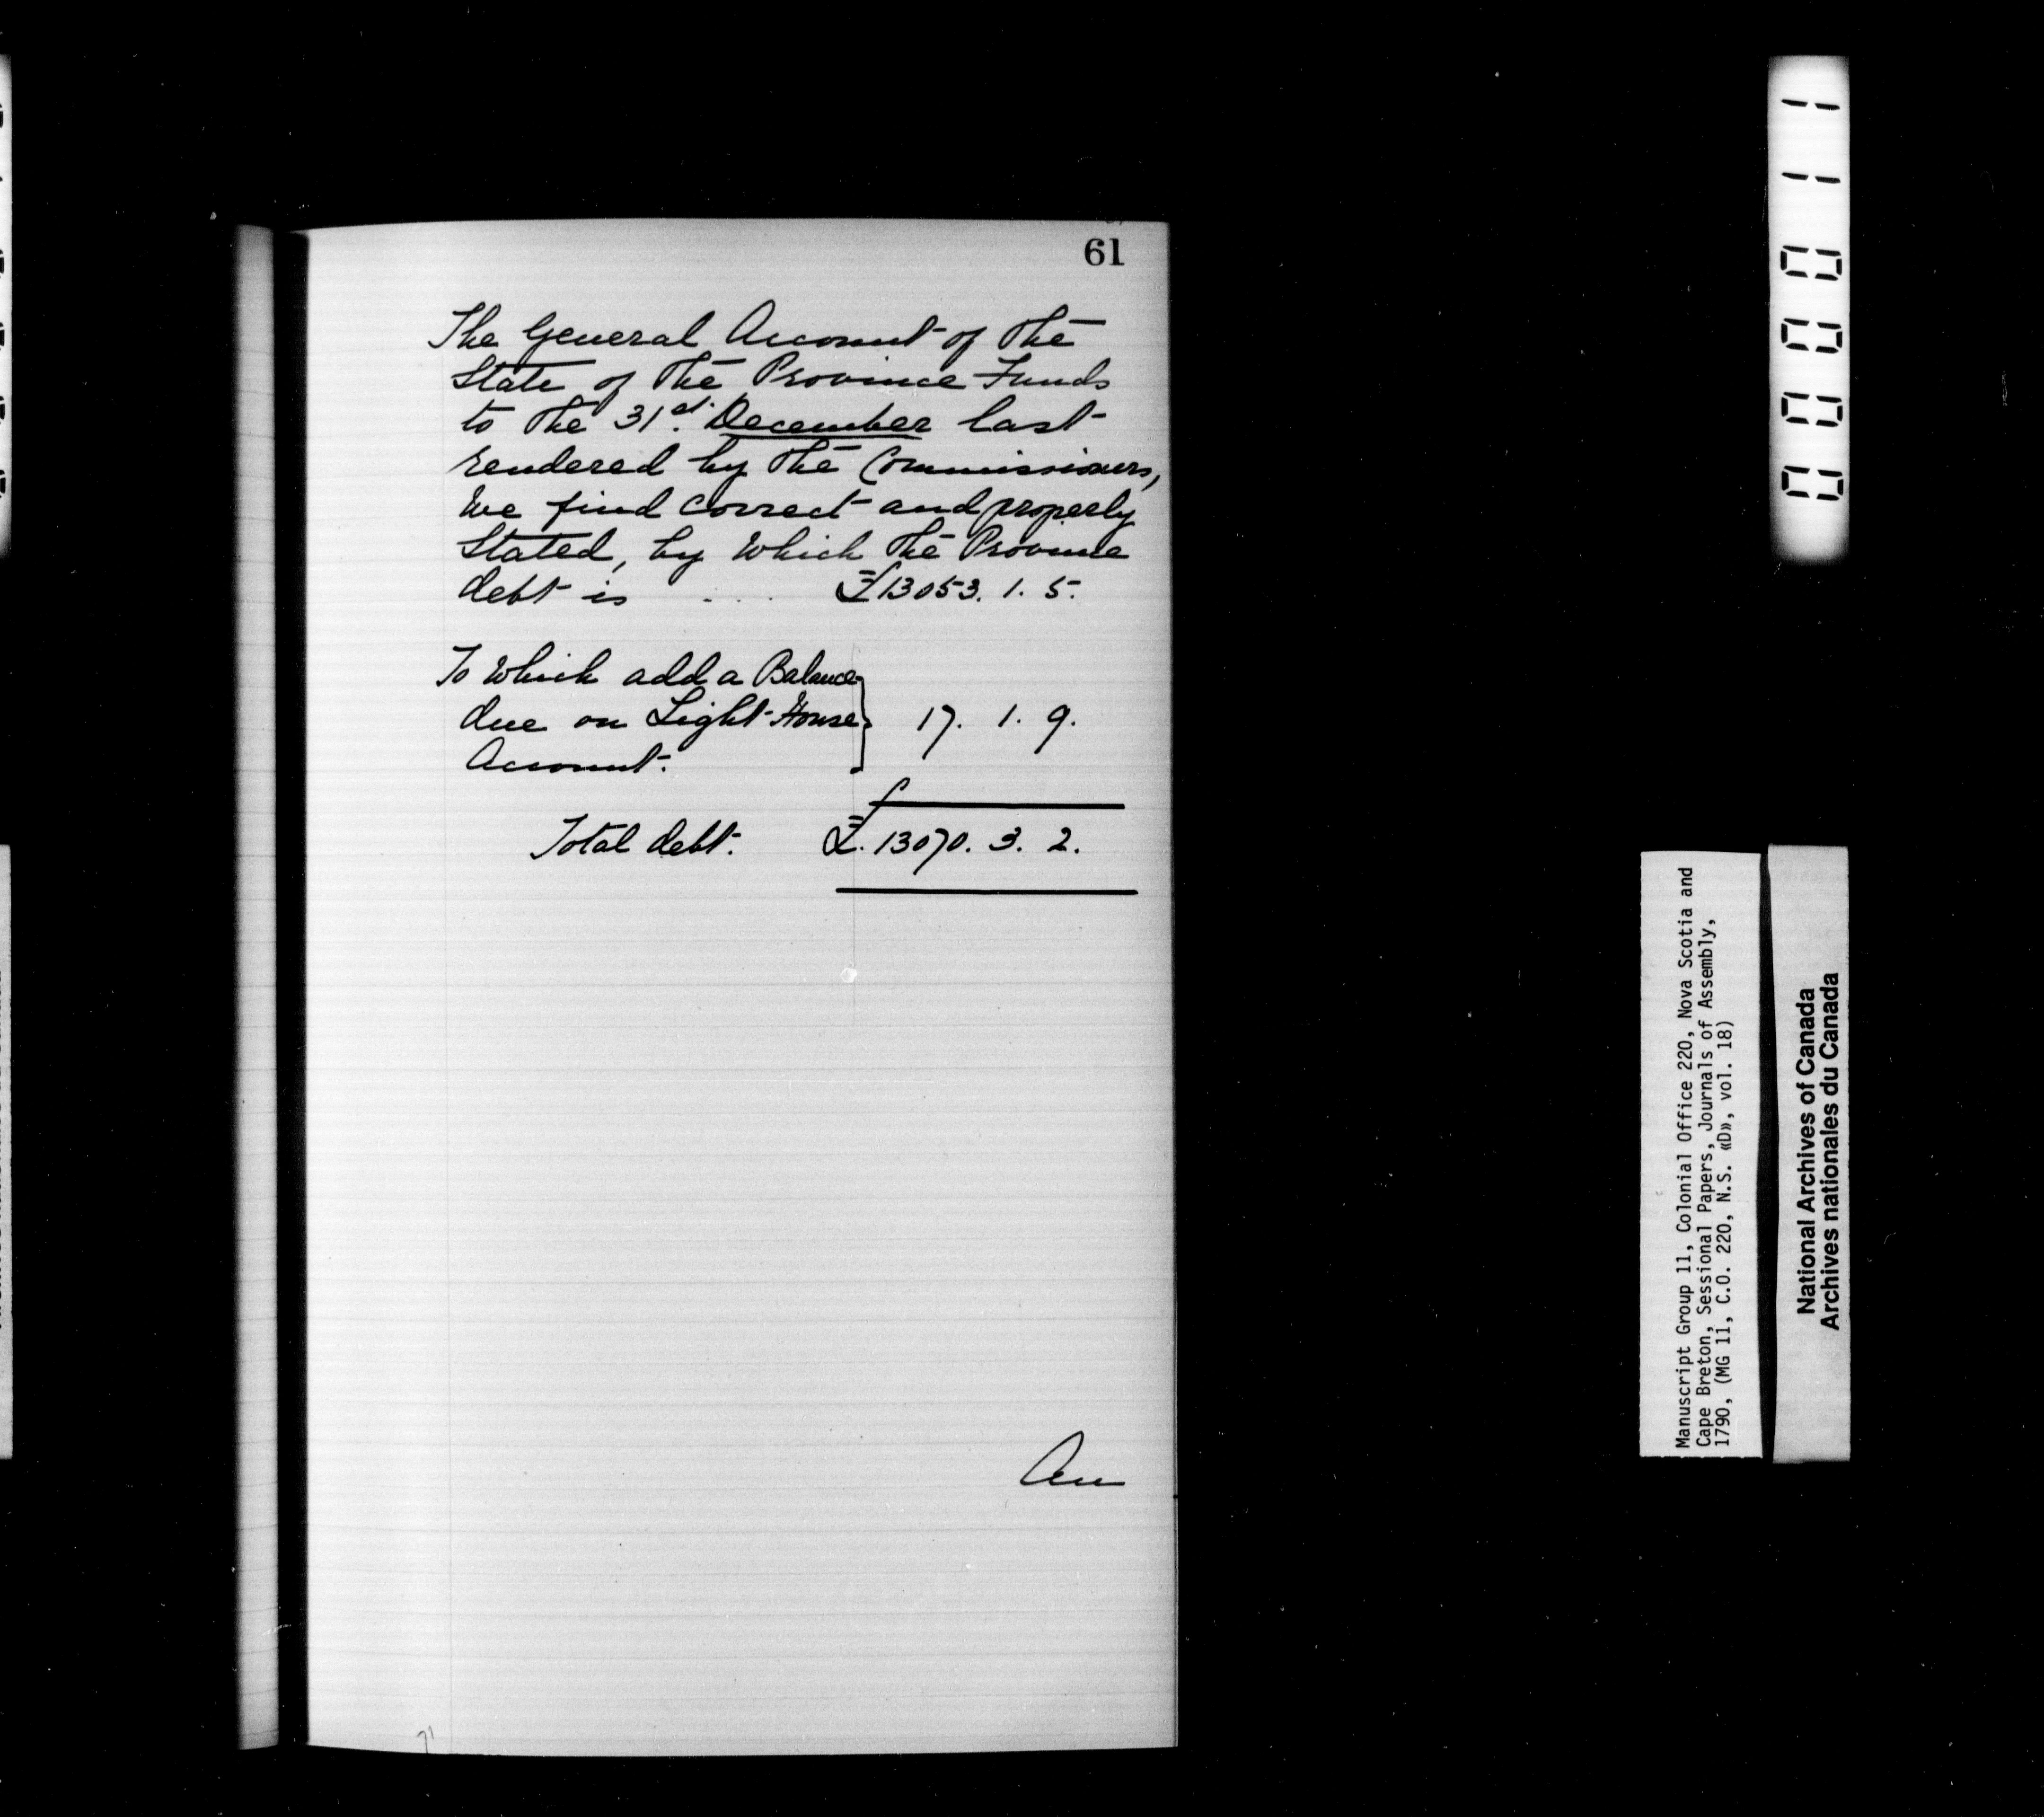 61
The General Account of the
State of the Province Funds
to the 31st. December last
rendered by the Commissioners,
We find Correct and properly
Stated, by Which the Province
debt is .... £13053. 1. 5.
To Which add a Balance
due on Light House } 17. 1. 9.
Account.
Total debt. £. 13070. 3. 2.
An
000011
Manuscript Group 11, Colonial Office 220, Nova Scotia and
Cape Breton, Sessional Papers, Journals of Assembly,
1790, (MG 11, C.O. 220, N.S. «D», vol. 18)
National Archives of Canada
Archives nationales du Canada